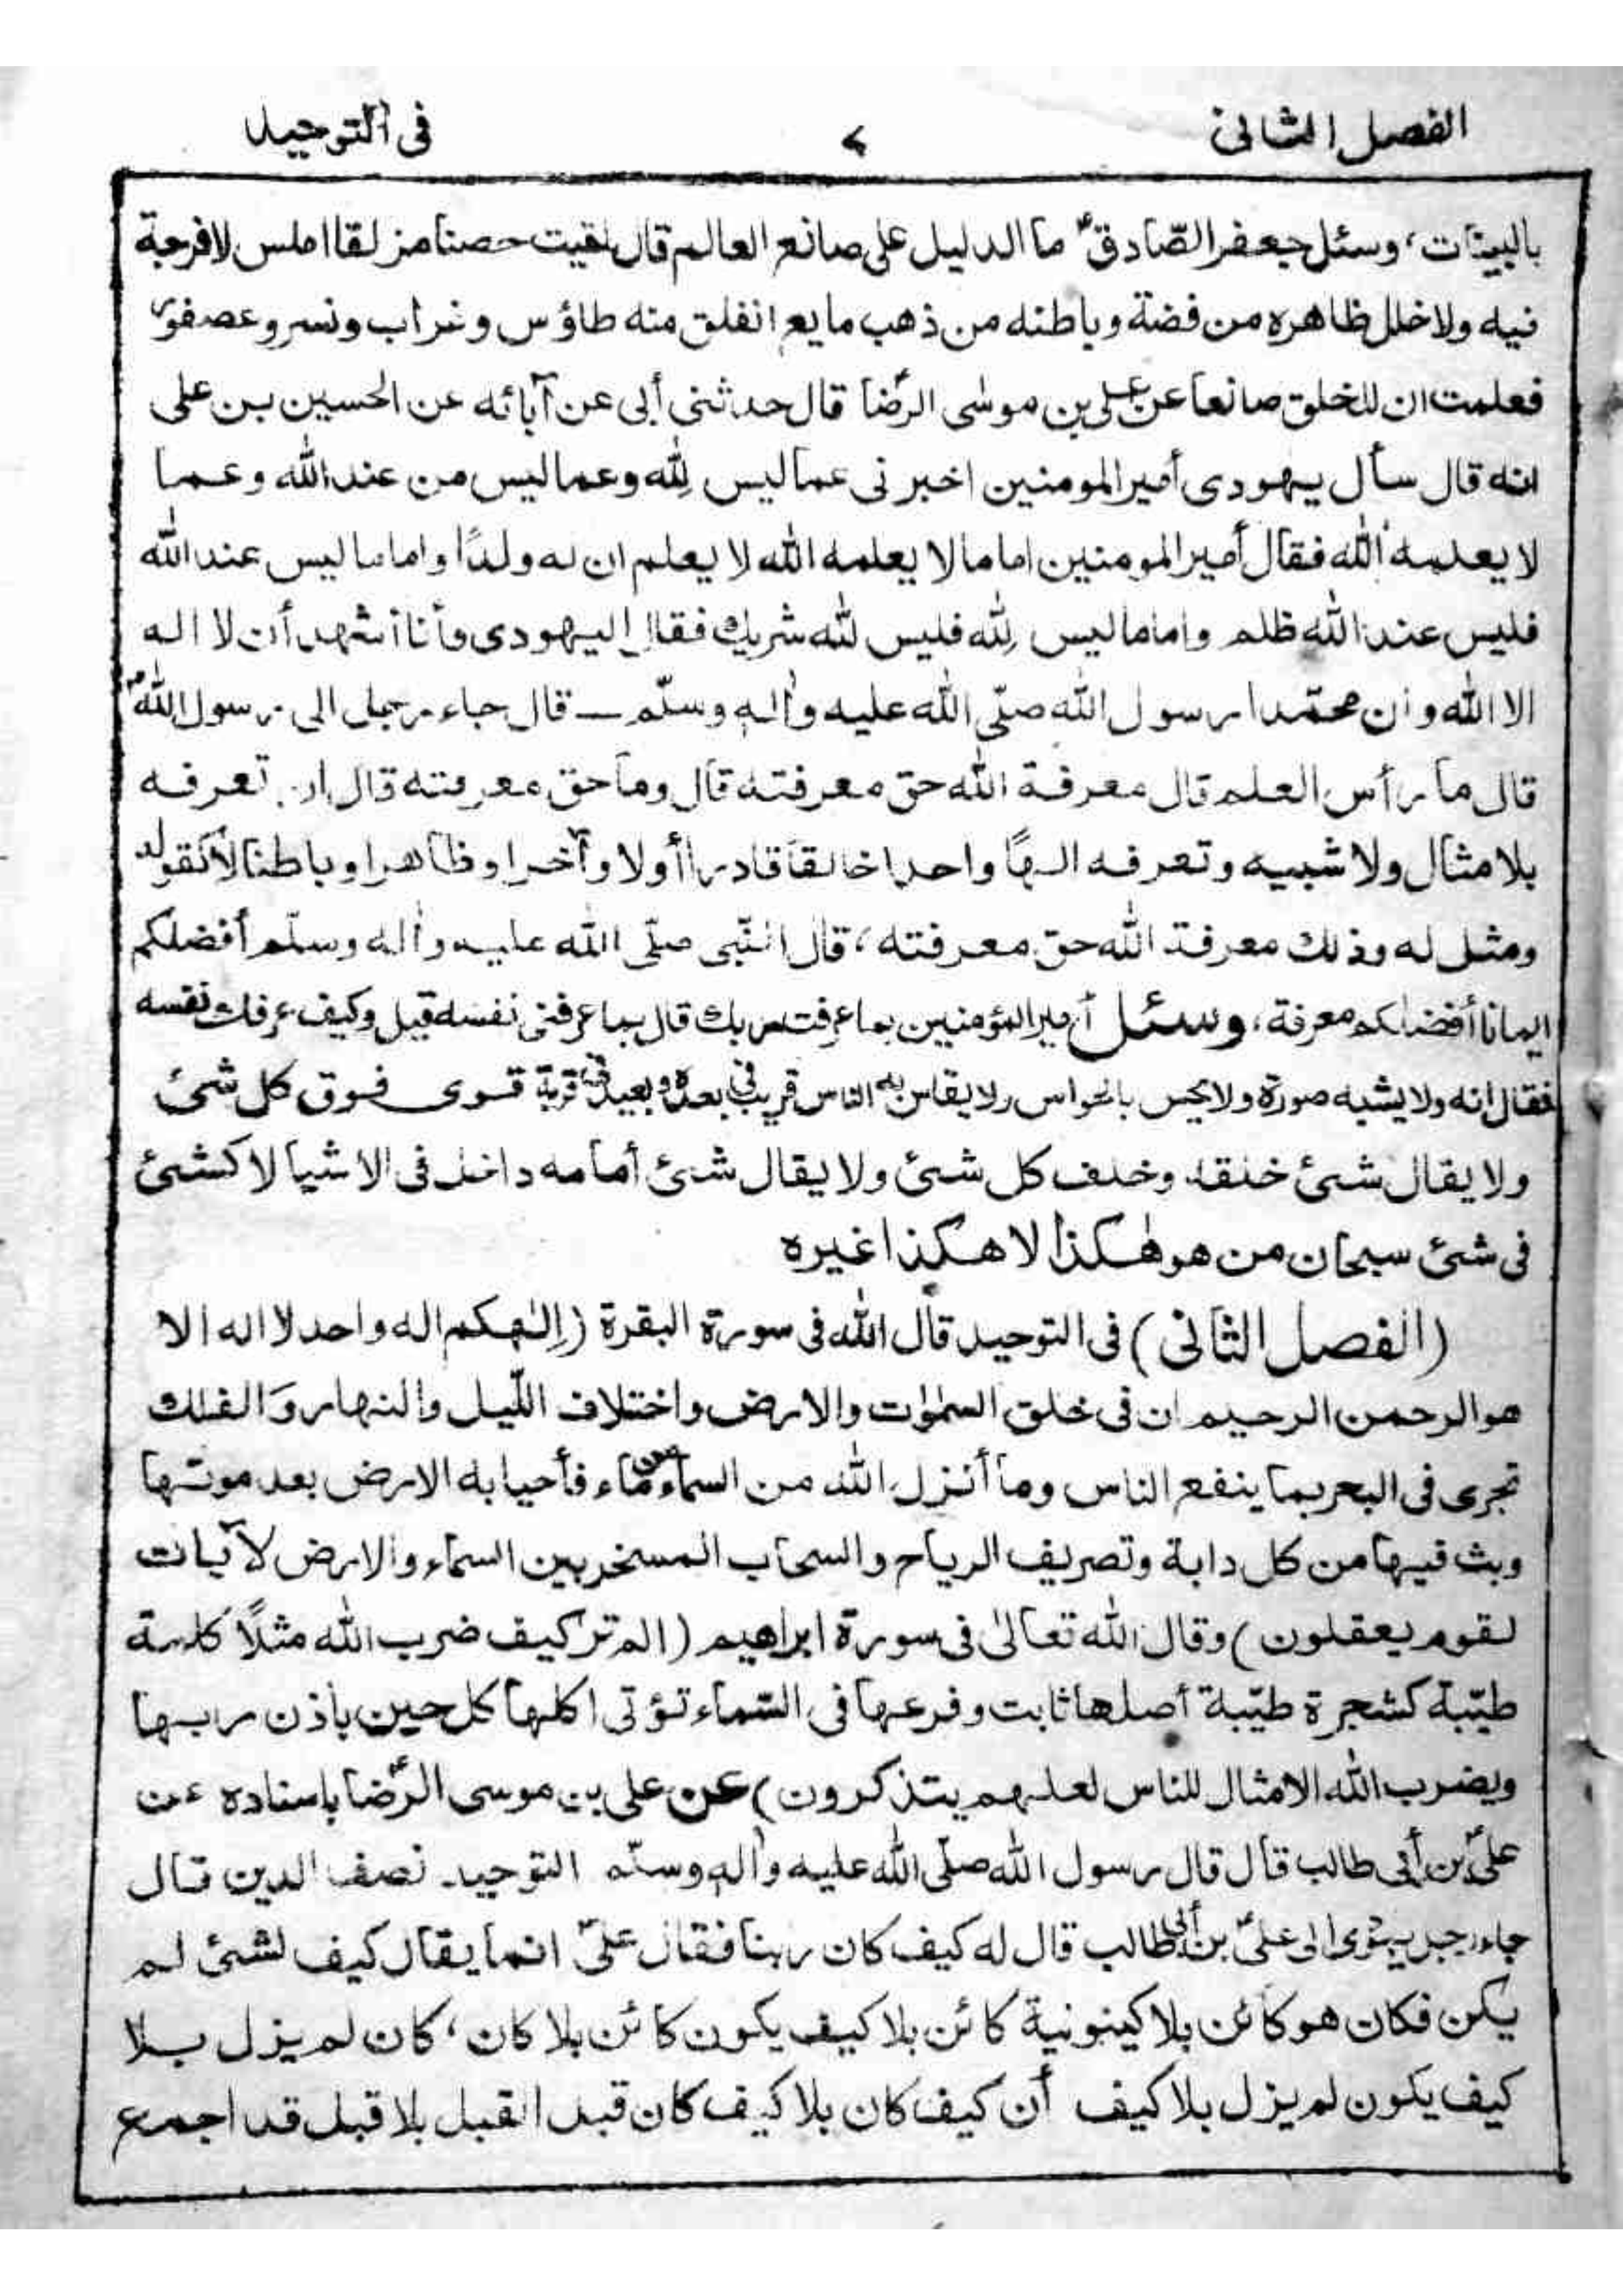 الفصل الثانى ٧ فى التوحيد
بالبينات، وسئل جعفر الصّادقؑ ما الدليل على صانع العالم قال لقيت حصنا مزلقا املس لا فرجة
فيه ولا خلل ظاهره من فضة وباطنه من ذهب مايع انفلق منه طاؤس وغراب ونسر وعصفور
فعلمت ان للخلق صانعا عن على بن موسٰى الرضا قال حدثنى أبى عن آبائه عن الحسين بن على
انه قال سأل يهودى أمير المومنين اخبرنى عما ليس لله وعما ليس من عند الله وعما
لا يعلمه الله فقال أمير المومنين اما ما لا يعلمه الله لا يعلم ان له ولدًا واما ما ليس عند الله
فليس عند الله ظلم واما ما ليس لله فليس لله شريك فقال اليهودى وأنا أشهد أن لا اله
الا الله وأن محمّدا رسول الله صلّى الله عليه واٰله وسلّم ـــ قال جاء رجل الى رسول اللهؐ
قال ما رأس العلم قال معرفة الله حق معرفته قال وما حق معرفته قال ان تعرفه
بلا مثال ولا شبيه وتعرفه الهًا واحدا خالقا قادرا أولا وآخرا وظاهرا وباطنا لا كفو له
ومثل له وذلك معرفة الله حق معرفته، قال النّبى صلّى الله عليه واٰله وسلّم أفضلكم
ايمانا أفضلكم معرفة، وسئل أمير المؤمنين بما عرفت ربك قال بما عرفنى نفسه قيل وكيف عرفك نفسه
فقال انه ولا يشبه صورة ولا يحس بالحواس ولا يقاس به الناس قريب فى بعده وبعيد فى قربة قوى فوق كل شئ
ولا يقال شئ خلقه وخلف كل شئ ولا يقال شئ أمامه داخل فى الاشيا لا كشئ
فى شئ سبحان من هو هٰكذا لا هكذا غيره
(الفصل الثانى) فى التوحيد قال الله فى سورة البقرة (إلٰهكم اله واحد لا اله الا
هو الرحمن الرحيم ان فى خلق السمٰوٰت والارض واختلاف اللّيل والنهار وَالفلك
تجرى فى البحر بما ينفع الناس وما أنزل الله من السماء من ماء فأحيا به الارض بعد موتها
وبث فيها من كل دابة وتصريف الرياح والسحاب المسخر بين السماء والارض لآيات
لقوم يعقلون) وقال الله تعالىٰ فى سورة ابراهيم (الم تر كيف ضرب الله مثلًا كلمة
طيّبة كشجرة طيّبة أصلها ثابت وفرعها فى السّماء تؤتى اكلها كل حين باذن ربها
ويضرب الله الامثال للناس لعلهم يتذكرون) عن على بن موسى الرّضا باسناده عن
علىّ بن أبى طالب قال قال رسول الله صلّى الله عليه واٰله وسلّم التوحيد نصف الدين قال
جاء رجل يهودى الى علىّ بن أبى طالب قال له كيف كان ربنا فقال علىّ انما يقال كيف لشئ لم
يكن فكان هو كائن بلا كينونية كائن بلا كيف يكون كائن بلا كان، كان لم يزل بلا
كيف يكون لم يزل بلا كيف أن كيف كان بلا كيف كان قبل القبل بلا قبل قد اجمع